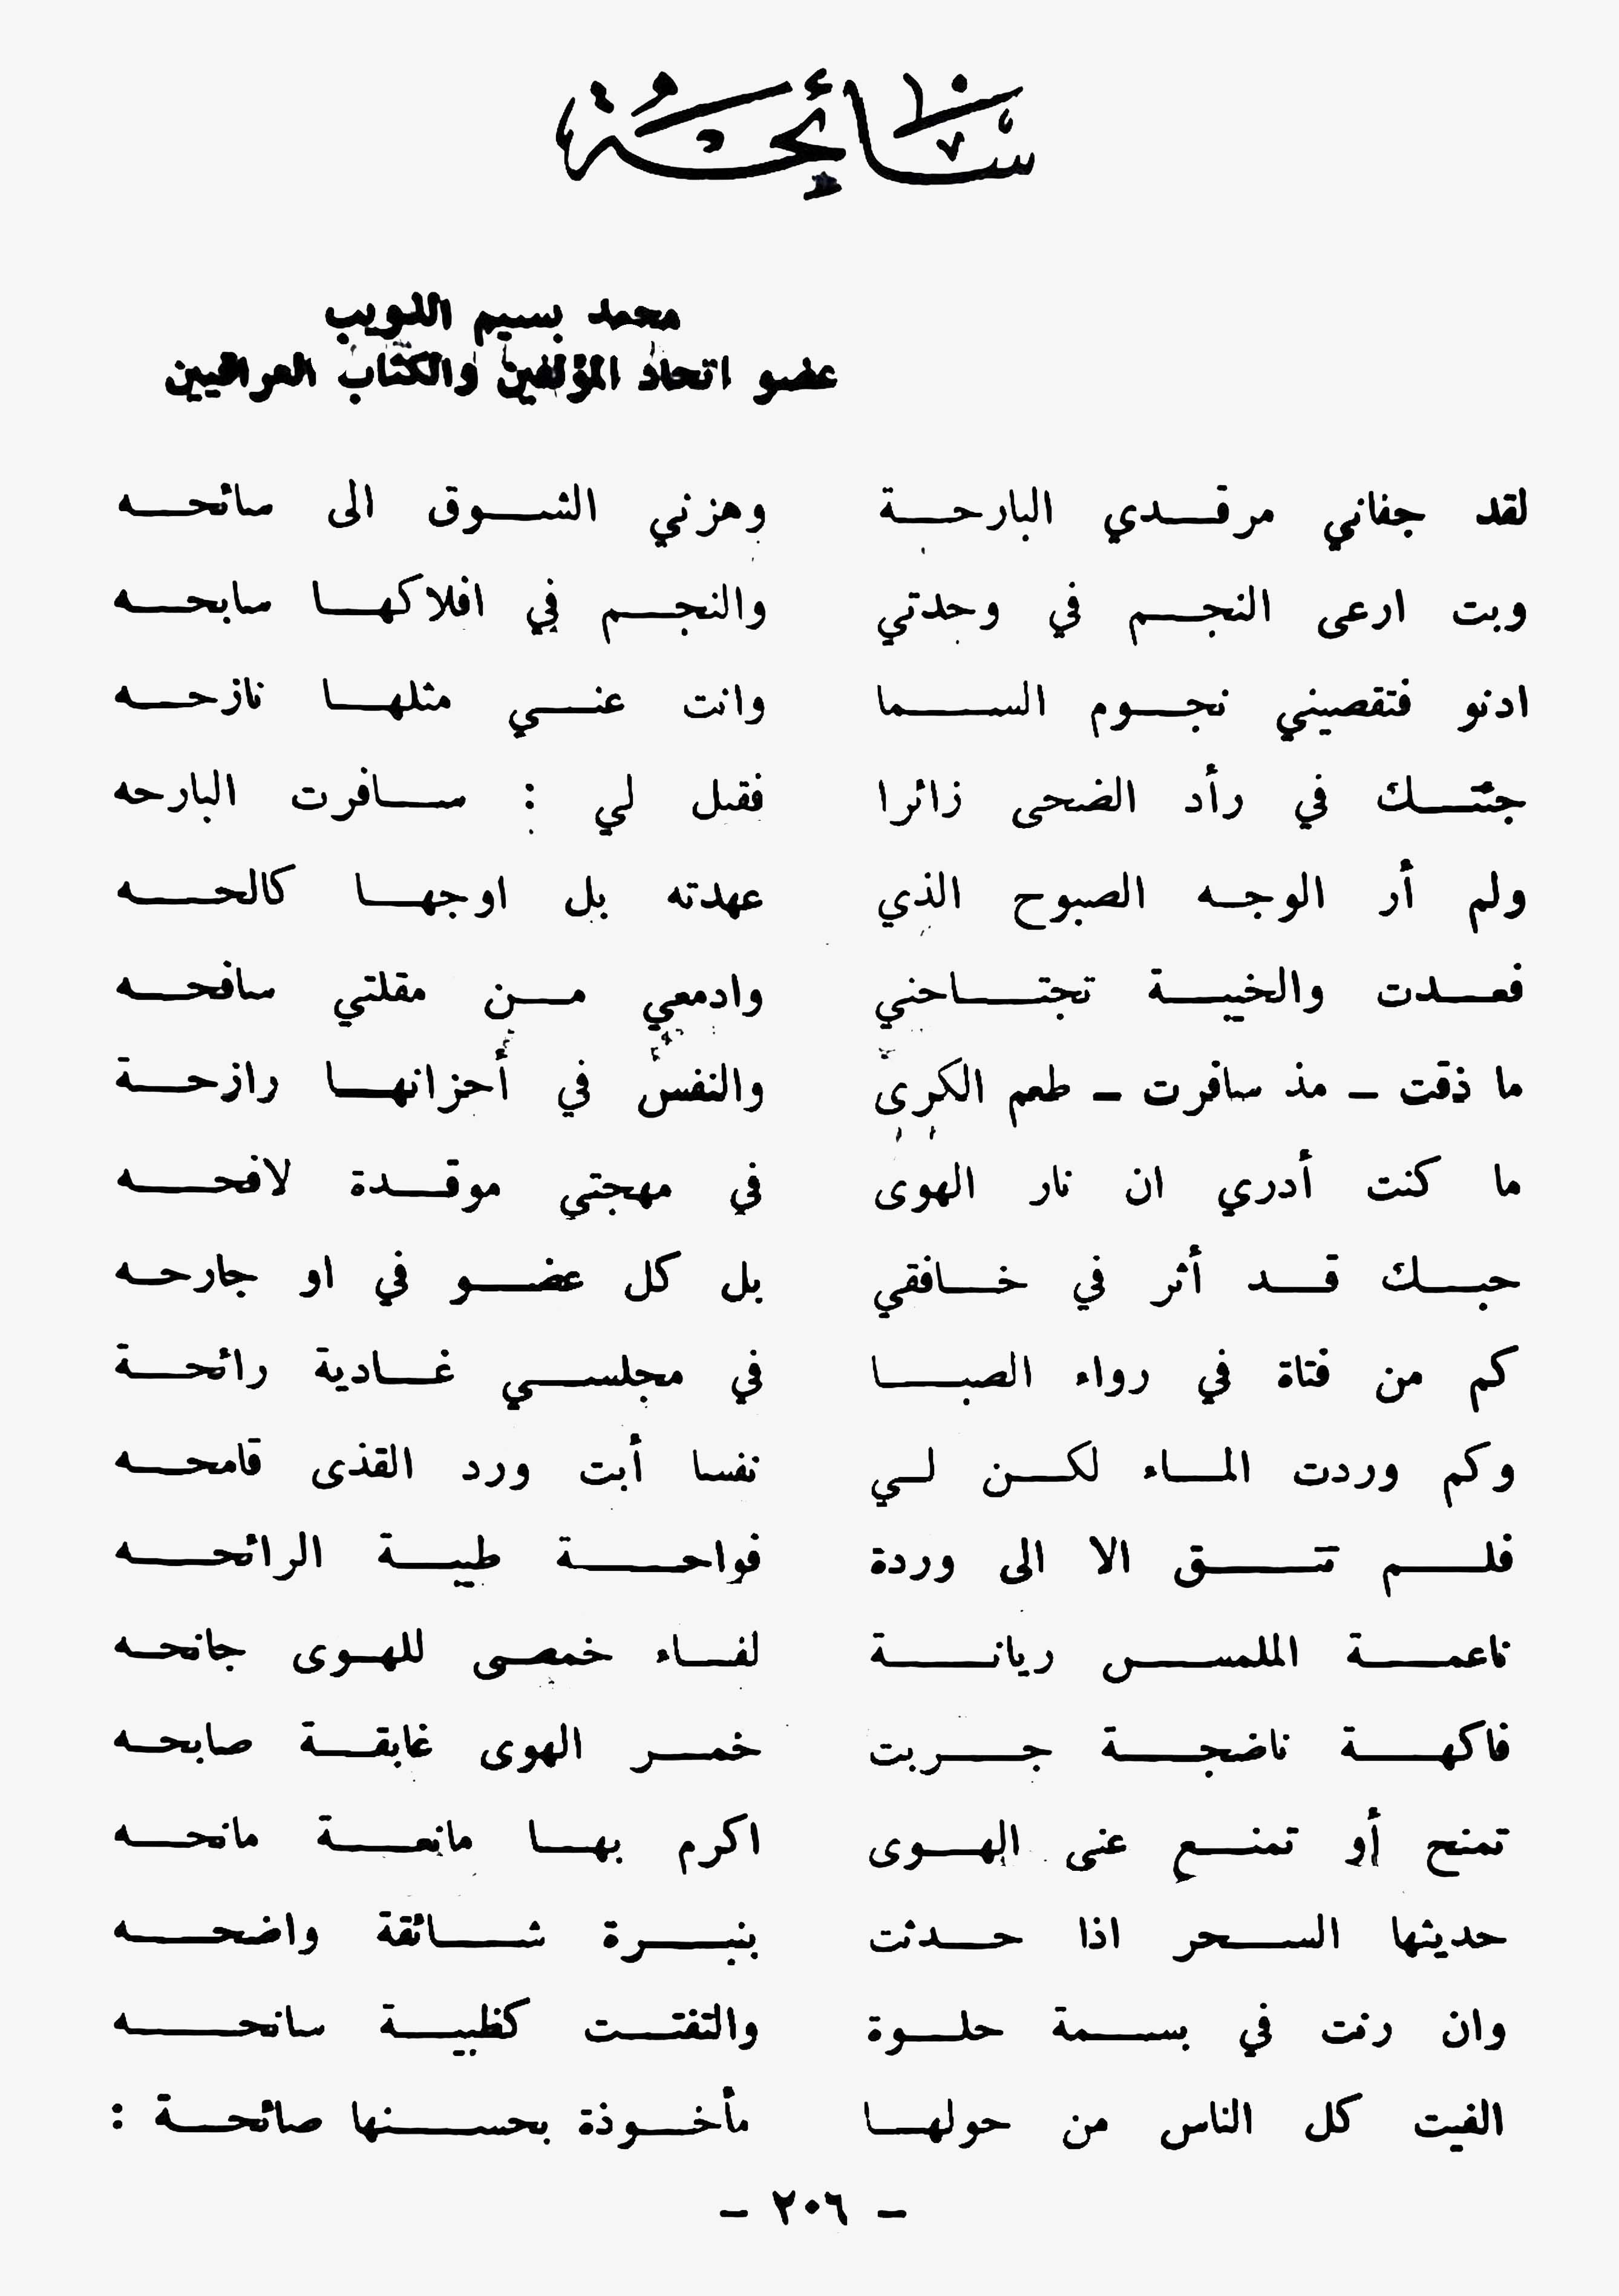 سائحة
محمد بسيم الذويب
عضو اتحاد المؤلفين والكتاب العراقيين
لقد جفاني مرقدي البارحة وهزني الشوق الى سائحه
وبت ارعى النجم في وحدتي والنجم في افلاكها سابحه
ادنو فتقصيني نجوم السما وانت عني مثلها نازحه
جئتك في رأد الضحى زائرا فقيل لي : سافرت البارحه
ولم أر الوجه الصبوح الذي عهدته بل اوجها كالحه
فعدت والخيبة تجتاحني وادمعي من مقلتي سافحه
ما ذقت - مذ سافرت - طعم الكرى والنفس في أحزانها رازحة
ما كنت أدري ان نار الهوى في مهجتي موقدة لافحه
حبك قد أثر في خافقي بل كل عضو في او جارحه
كم من فتاة في رواء الصبا في مجلسي غادية رائحة
وكم وردت الماء لكن لي نفسا أبت ورد القذى قامحه
فلم تتق الا الى وردة فواحة طيبة الرائحه
ناعمة الملمس ريانة لفاء خمصى للهوى جانحه
فاكهة ناضجة جربت خمر الهوى غابقة صابحه
تمنح أو تمنع عنى الهوى اكرم بها مانعة مانحه
حديثها السحر اذا حدثت بنبرة شائقة واضحه
وان رنت في بسمة حلوة والتفتت كظبية سانحه
الفيت كل الناس من حولها مأخوذة بحسنها صائحة :
- ٢٠٦ -